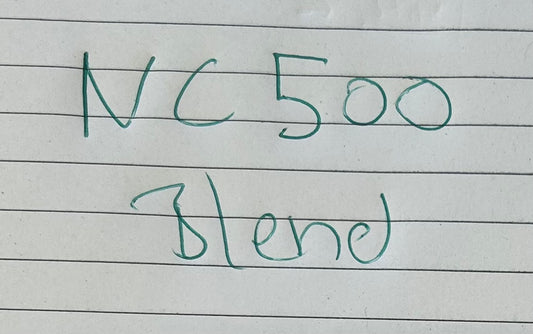 NC500
Blend